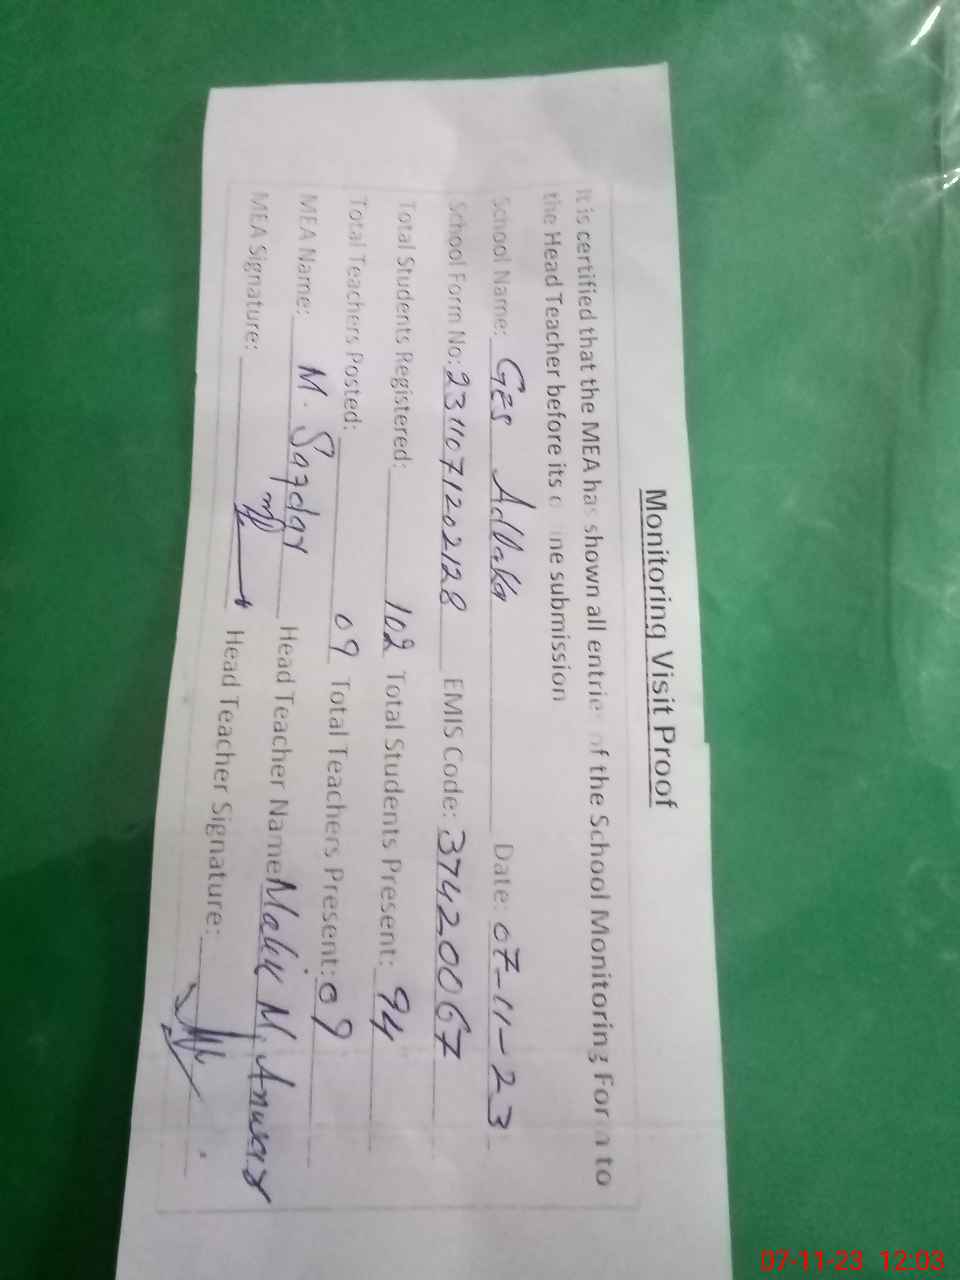 Monitoring Visit Proof
It is certified that the MEA has shown all entries of the School Monitoring Form to
the Head Teacher before its online submission
School Name: GES Adlaka Date: 07-11-23
School Form No: 2311071202128 EMIS Code: 37420067
Total Students Registered: 102 Total Students Present: 94
Total Teachers Posted: 09 Total Teachers Present: 09
MEA Name: M. Safdar Head Teacher Name Malik M. Anwar
MEA Signature: Head Teacher Signature:
07-11-23 12:03